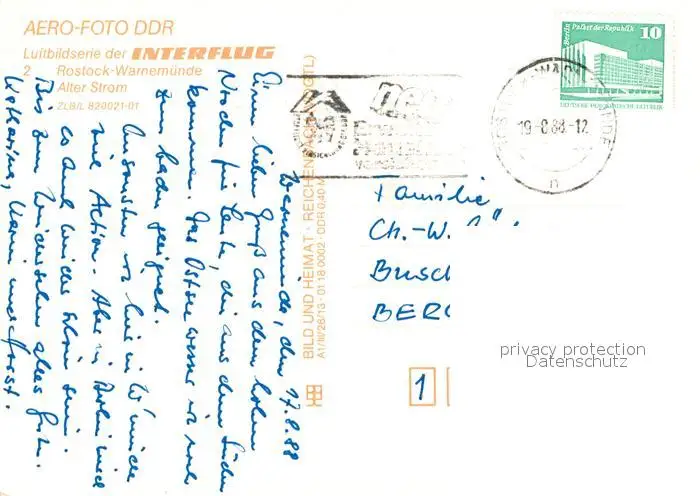 AERO-FOTO DDR
Luftbildserie der INTERFLUG
2 Rostock-Warnemünde
Alter Strom
ZLB/L 820021-01
Berlin Palast der Republik 10
DEUTSCHE DEMOKRATISCHE REPUBLIK
19-8.88-12
n
BILD UND HEIMAT · REICHENBACH (VOGTL)
A1/III/26/13 · 01 18 0002 · DDR 0,40 M
Warnemünde, den 17.8.88
Einen lieben Gruß aus dem hohen
Norden für Leute, die aus dem Süden
kommen. Das Ostseewasser ist noch
zum baden geeignet.
Ansonsten ist hier in W'münde
viel Action. Aber in Berlin wird
es auch wieder schön sein.
Bis zum Wiedersehen alles Gute.
Katharina, Hanni und Horst.
Familie
Ch.-W.
Busch
BERL
1
privacy protection
Datenschutz